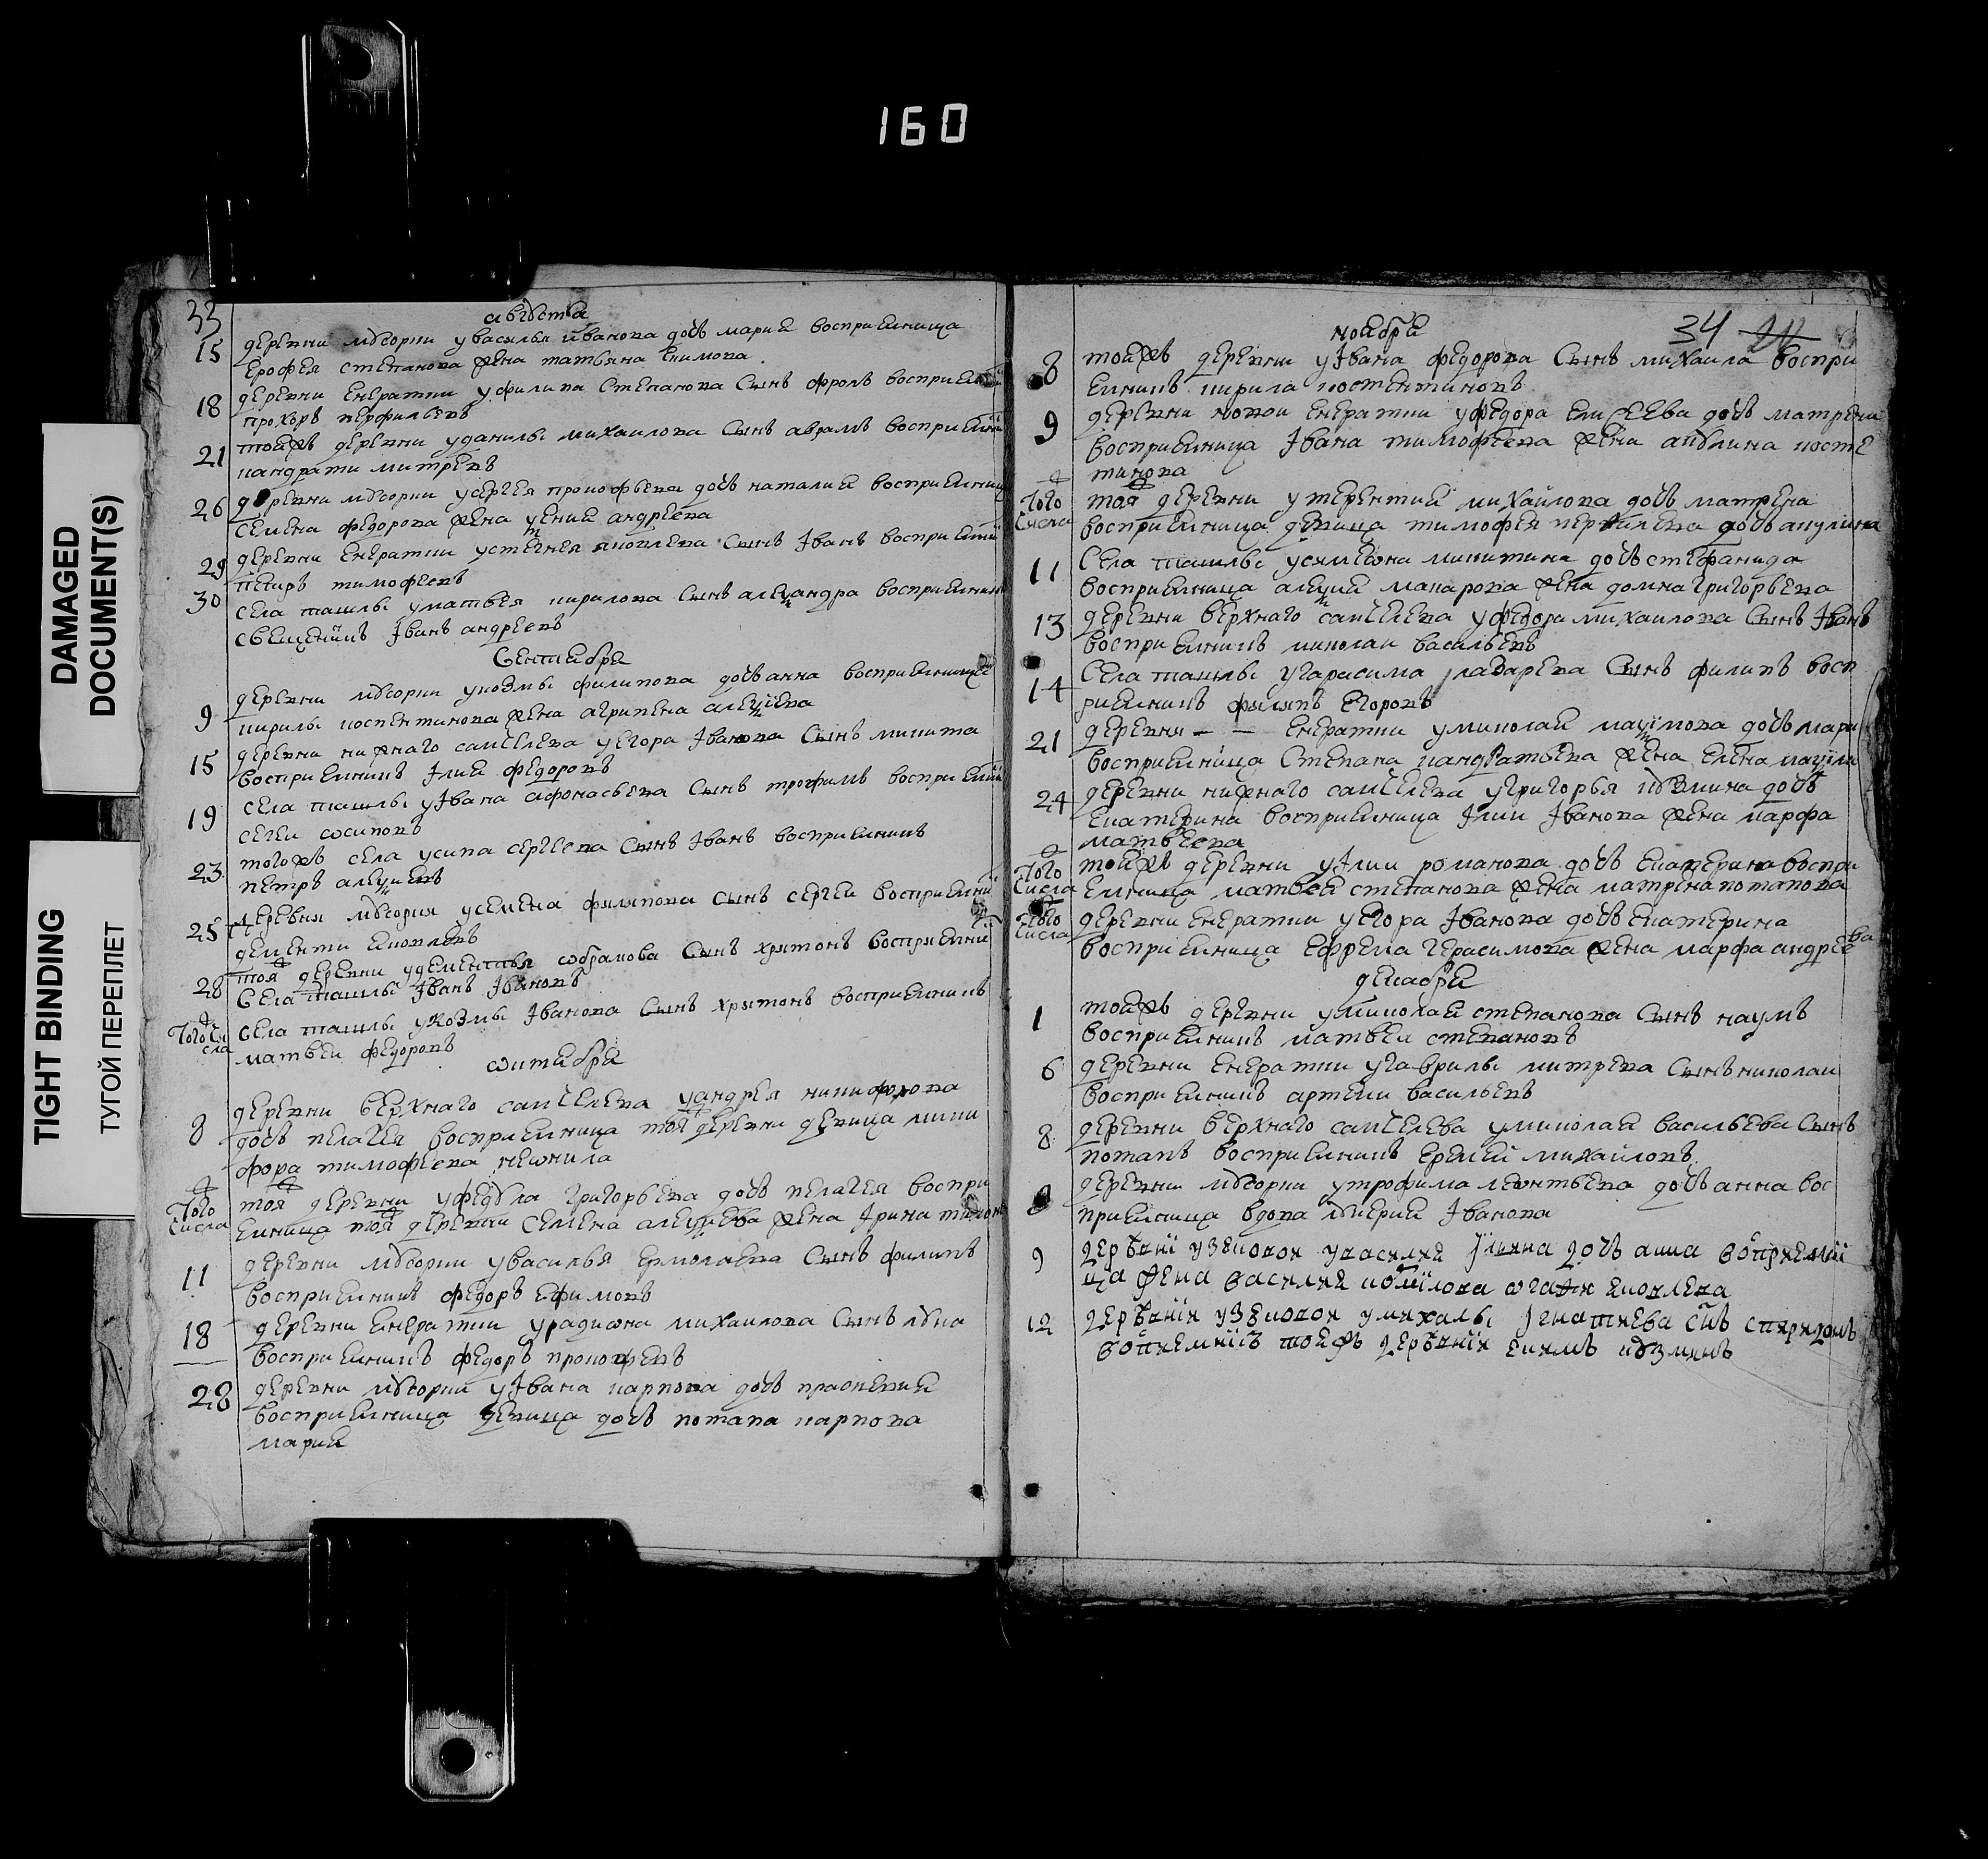 160
DAMAGED
DOCUMENT(S)
TIGHT BINDING
ТУГОЙ ПЕРЕПЛЕТ
33
августа
15 деревни мусорки у василья иванова дочь мария восприемница
ерофея степанова жена татьяна екимова
18 деревни кнератки у филипа степанова сынъ фролъ восприемни
прохоръ перфильевъ
21 тойжъ деревни у данилы михаилова сынъ аврамъ восприемни
кандрати митревъ
26 деревни мусорки у сергея прокофьева дочь наталия восприемниц
семена федорова жена андреева
29 деревни кнератки у яковлева сынъ Iванъ восприемни
петръ тимофеевъ
30 села ташлы у матвея кирилова сынъ александра восприемник
священникъ Iванъ андреевъ
сентября
9 деревни мусорки у козмы филипова дочь анна восприемница
кирилы костентинова жена агрипена алексеева
15 деревни нижнаго санчелеева у егора Iванова сынъ микита
восприемникъ Iлия федоровъ
19 села ташлы у Iвана афонасьева сынъ трофимъ восприемни
сергеи осиповъ
23 тогожъ села у сергеева сынъ Iванъ восприемникъ
петръ алексеевъ
25 деревня мусорки у семена филипова сынъ сергеи восприемни
дементи яковлевъ
28 тоя деревни у дементья абрамова сынъ харитонъ восприемни
села ташлы Iванъ Iвановъ
того числа села ташлы у козмы Iванова сынъ харитонъ восприемникъ
матвеи федоровъ
октября
8 деревни верхнаго санчелеева у андрея никифорова
дочь пелагея восприемница тоя деревни девица мики
фора тимофеева неонила
того числа тоя деревни у федула григорьева дочь пелагея воспри
емница тоя деревни семена алексеева жена Iрина
11 деревни мусорки у василья ермолаева сынъ филипъ
восприемникъ федоръ ефимовъ
18 деревни кнератки у радиона михаилова сынъ лука
восприемникъ федоръ прокофевъ
28 деревни мусорки у Iвана карпова дочь прасковия
восприемница девица дочь потапа карпова
мария
34
ноября
8 тойжъ деревни у Iвана федорова сынъ михаила воспри
емникъ кирила костентиновъ
9 деревни новои кнератки у федора елисеева дочь матрена
восприемница Iвана тимофеева жена акулина косте
тинова
того числа тоя деревни у терентия михайлова дочь матрена
восприемница девица тимофея перфилева дочь акулина
11 села ташлы у симеона микитина дочь стефанида
восприемница алексия макарова жена домна григорьева
13 деревни верхнаго санчелеева у федора михаилова сынъ Iванъ
восприемникъ николаи васильевъ
14 села ташлы у гарасима лазарева сынъ филипъ восп
риемникъ филипъ егоровъ
21 деревни — — кнератки у николая максимова дочь мари
восприемница степана кандратьева жена елена
24 деревни нижнаго санчелеева у григорья кузмина дочь
екатерина восприемница Iлии Iванова жена марфа
матвеева
того числа тойжъ деревни у Iлии романова дочь екатерина воспри
емница матвея степанова жена матрена потапова
того числа деревни кнератки у егора Iванова дочь екатерина
восприемница ефрема герасимова жена марфа андрее
ва
декабря
1 тойжъ деревни у николая степанова сынъ наумъ
восприемникъ матвеи степановъ
6 деревни кнератки у гаврилы митрева сынъ николаи
восприемникъ артеми васильевъ
8 деревни верхнаго санчелеева у николая васильева сынъ
потапъ восприемникъ еремей михайловъ
деревни мусорки у трофима леонтьева дочь анна вос
приемница вдова Iванова
9 деревни узюковои у василия дочь анна
ца жена василия агафя яковлева
12 деревни узюковои у михалы Iгнатиева снъ спиридонъ
тоежъ деревнии екимъ кузминъ